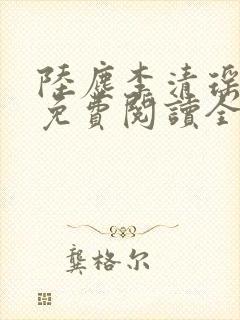 陸塵李清瑤
免費閱讀全
龔格尔